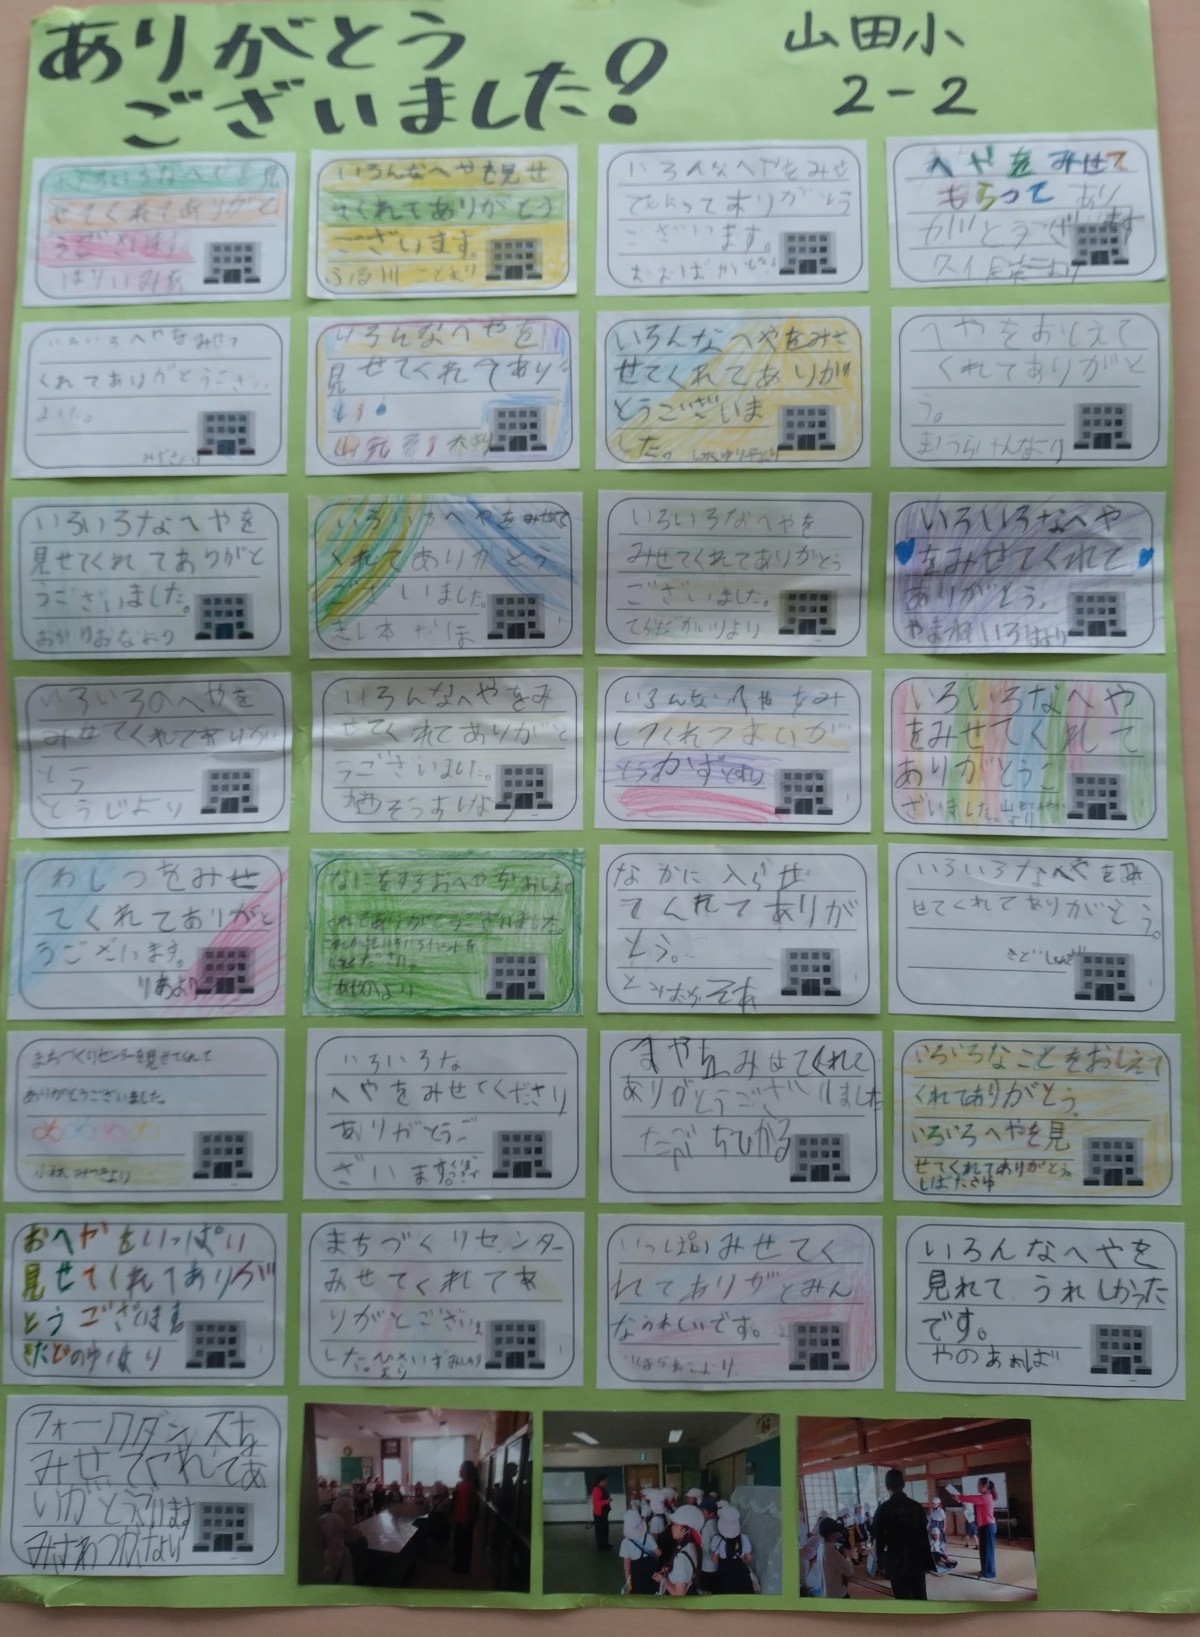 ありがとう
ございました!
山田小
2-2
いろいろなへやを見
せてくれてありがと
いろんなへやを見せ
てくれてありがとう
ございます。
いろんなへやをみせ
てもらってありがとう
ございます。
へやをみせて
もらって あり
がとうございます
いろいろへやをみせて
くれてありがとうござい
ました。
いろんなへやを
見せてくれてありが
とう
いろんなへやをみさ
せてくれてありが
とうございま
した。
へやをおしえて
くれてありがと
う。
まつうらけんより
いろいろなへやを
見せてくれてありがと
うございました。
いろいろへやをみせて
くれてありがとう
ございました。
いろいろなへやを
みせてくれてありがとう
ございました。
いろいろなへや
をみせてくれて
ありがとう。
いろいろのへやを
みせてくれてありがい
とう
とうじより
いろんなへやをみ
せてくれてありがと
うございました。
いろんなへやをみ
いろいろなへや
をみせてくれて
ありがとうご
ざいました。
わしつをみせ
てくれてありがと
うございます。
りあより
なにをするおへやかおしえて
くれてありがとうございました。
なかに入らせ
てくれてありが
とう。
いろいろなへやをみ
せてくれてありがとう。
まちづくりセンターを見せてくれて
ありがとうございました。
小林みつきより
いろいろな
へやをみせてくださり
ありがとうご
ざいます。
みせてくれて
ありがとうございました
いろいろなことをおしえて
くれてありがとう
いろいろへやを見
せてくれてありがとう。
しばたさゆ
おへやをいっぱい
見せてくれてありが
とうございます
まちづくりセンター
みせてくれてあ
りがとございま
した。
いっぱいみせてく
れてありがとみん
なうれしいです。
いろんなへやを
見れて うれしかった
です。
フォークダンスを
みせてくれてあ
いがとうございます